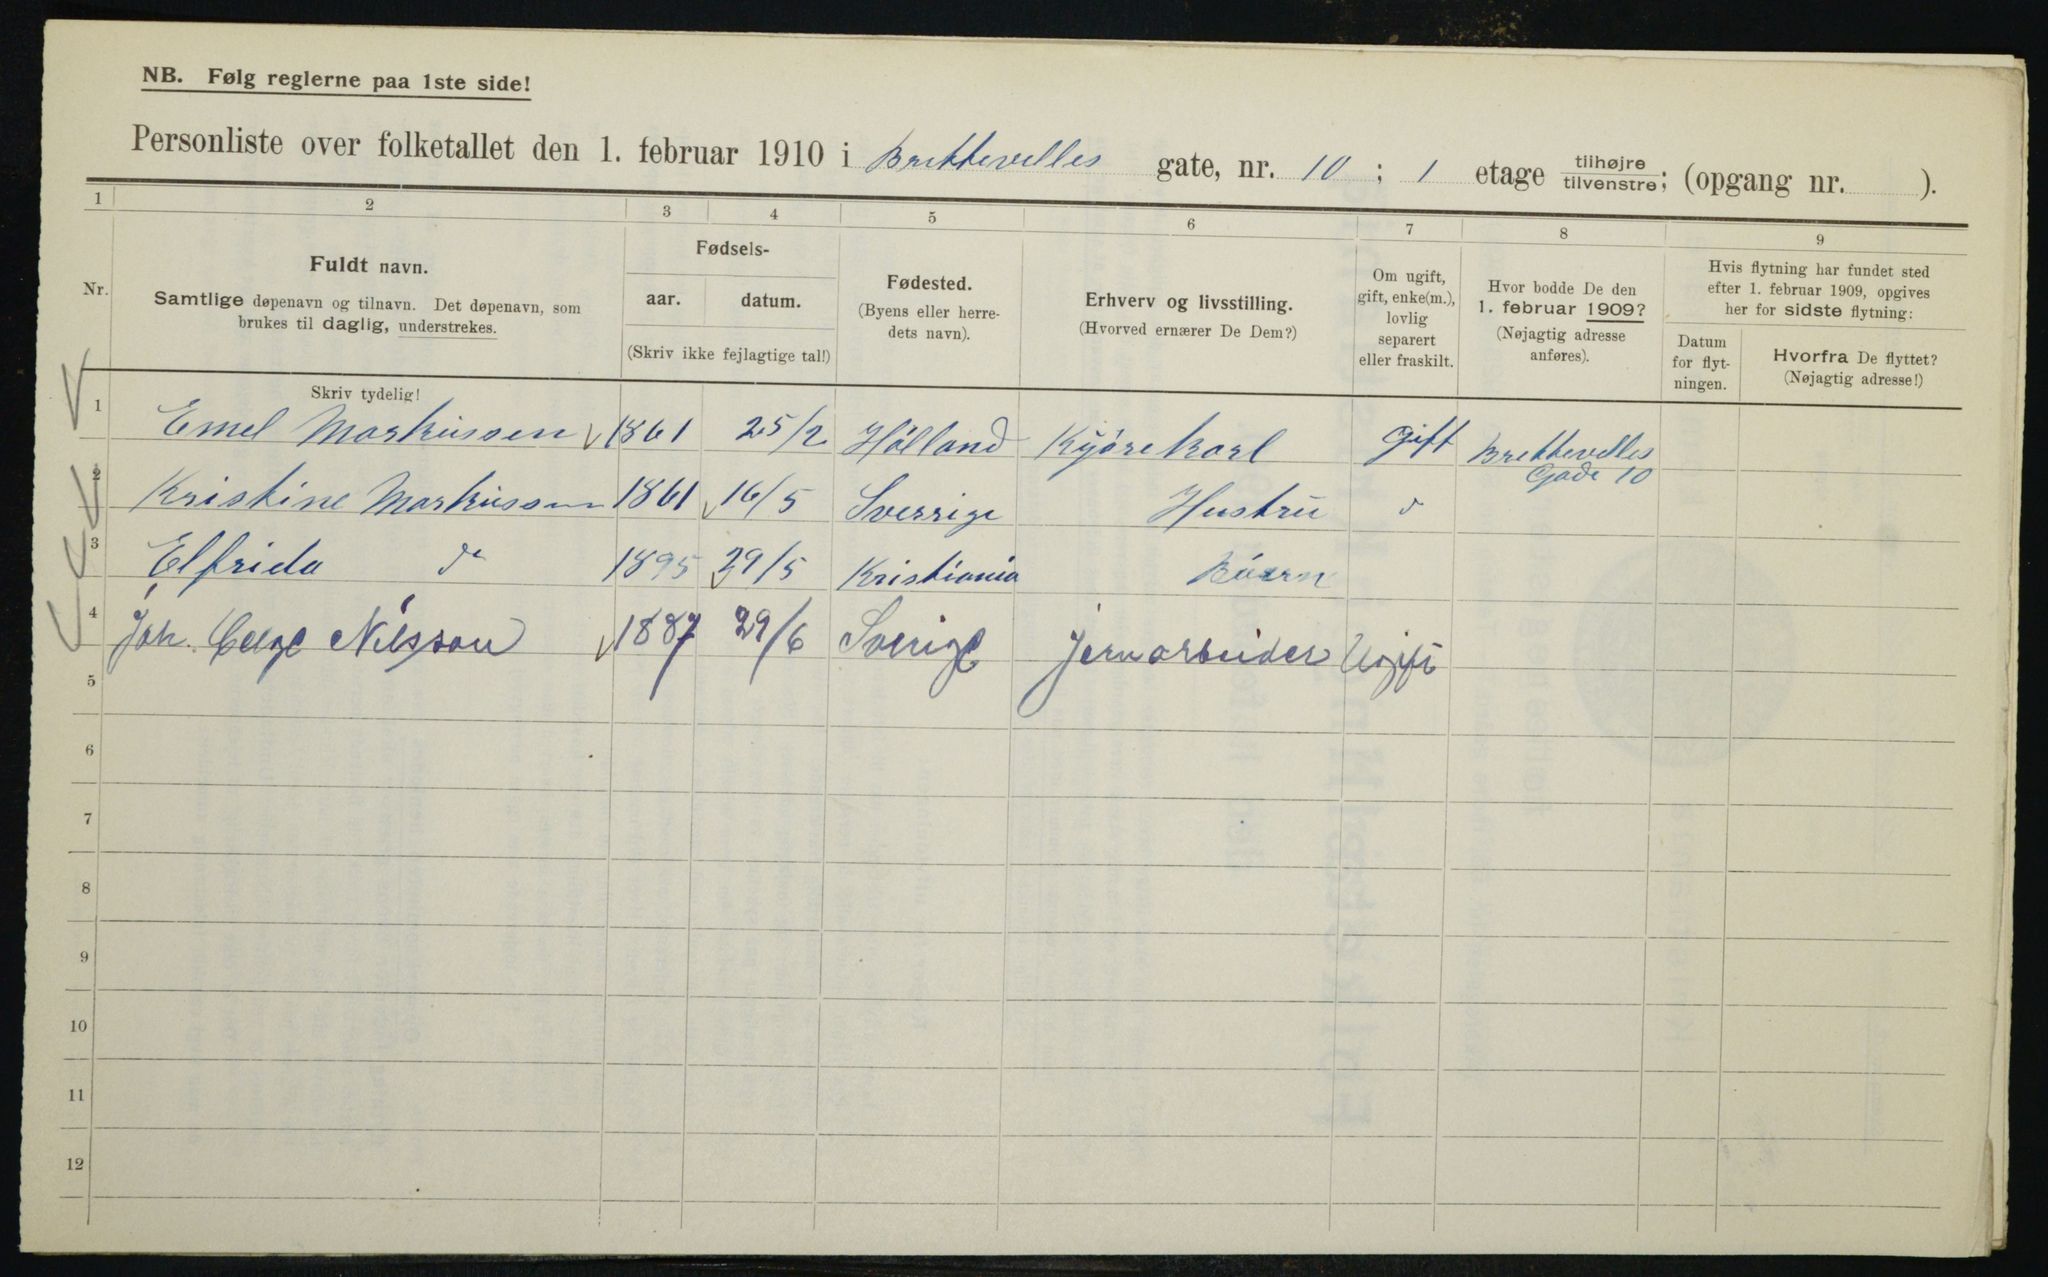 NB. Følg reglerne paa 1ste side!
Personliste over folketallet den 1. februar 1910 i Brettevelles gate, nr. 10 ; 1 etage tilhøjre tilvenstre; (opgang nr. ).
1 2 3 4 5 6 7 8 9
Nr.
Fuldt navn.
Samtlige døpenavn og tilnavn. Det døpenavn, som
brukes til daglig, understrekes.
Fødsels-
aar. datum.
(Skriv ikke fejlagtige tal!)
Fødested.
(Byens eller herre-
dets navn).
Erhverv og livsstilling.
(Hvorved ernærer De Dem?)
Om ugift,
gift, enke(m.),
lovlig
separert
eller fraskilt.
Hvor bodde De den
1. februar 1909?
(Nøjagtig adresse
anføres).
Hvis flytning har fundet sted
efter 1. februar 1909, opgives
her for sidste flytning:
Datum
for flyt-
ningen.
Hvorfra De flyttet?
(Nøjagtig adresse!)
Skriv tydelig!
1 Emel Markussen 1861 25/2 Hölland Kjörekarl Gift Brettevelles
Gade 10
2 Kristine Markussen 1861 16/5 Sverrige Hustru d
3 Elfrida do 1895 29/5 Kristiania Barn
4 Joh. Helge Nilsson 1887 29/6 Sverige Jernarbeider Ugift
5
6
7
8
9
10
11
12